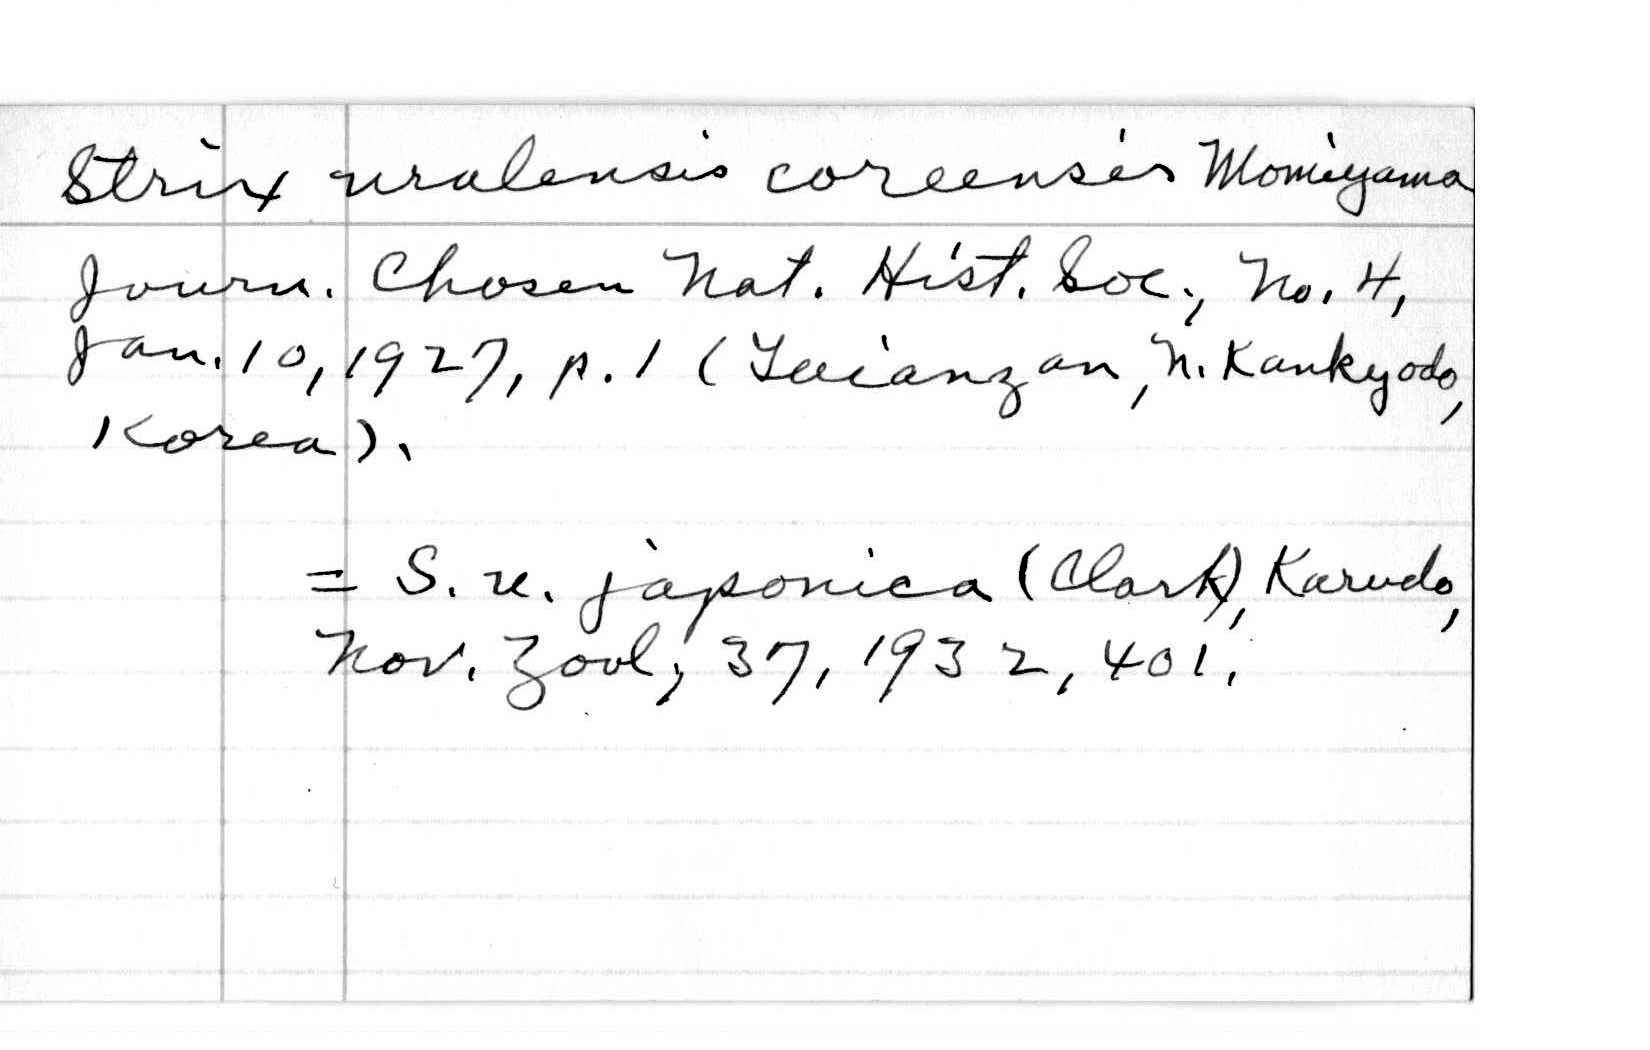 Strix uralensis coreensis Momiyama
Journ. Chosen Nat. Hist. Soc., No. 4,
Jan. 10, 1927, p. 1 (, N. Kankyodo,
Korea).
= S. u. japonica (Clark), Kuroda,
Nov. Zool., 37, 1932, 401.